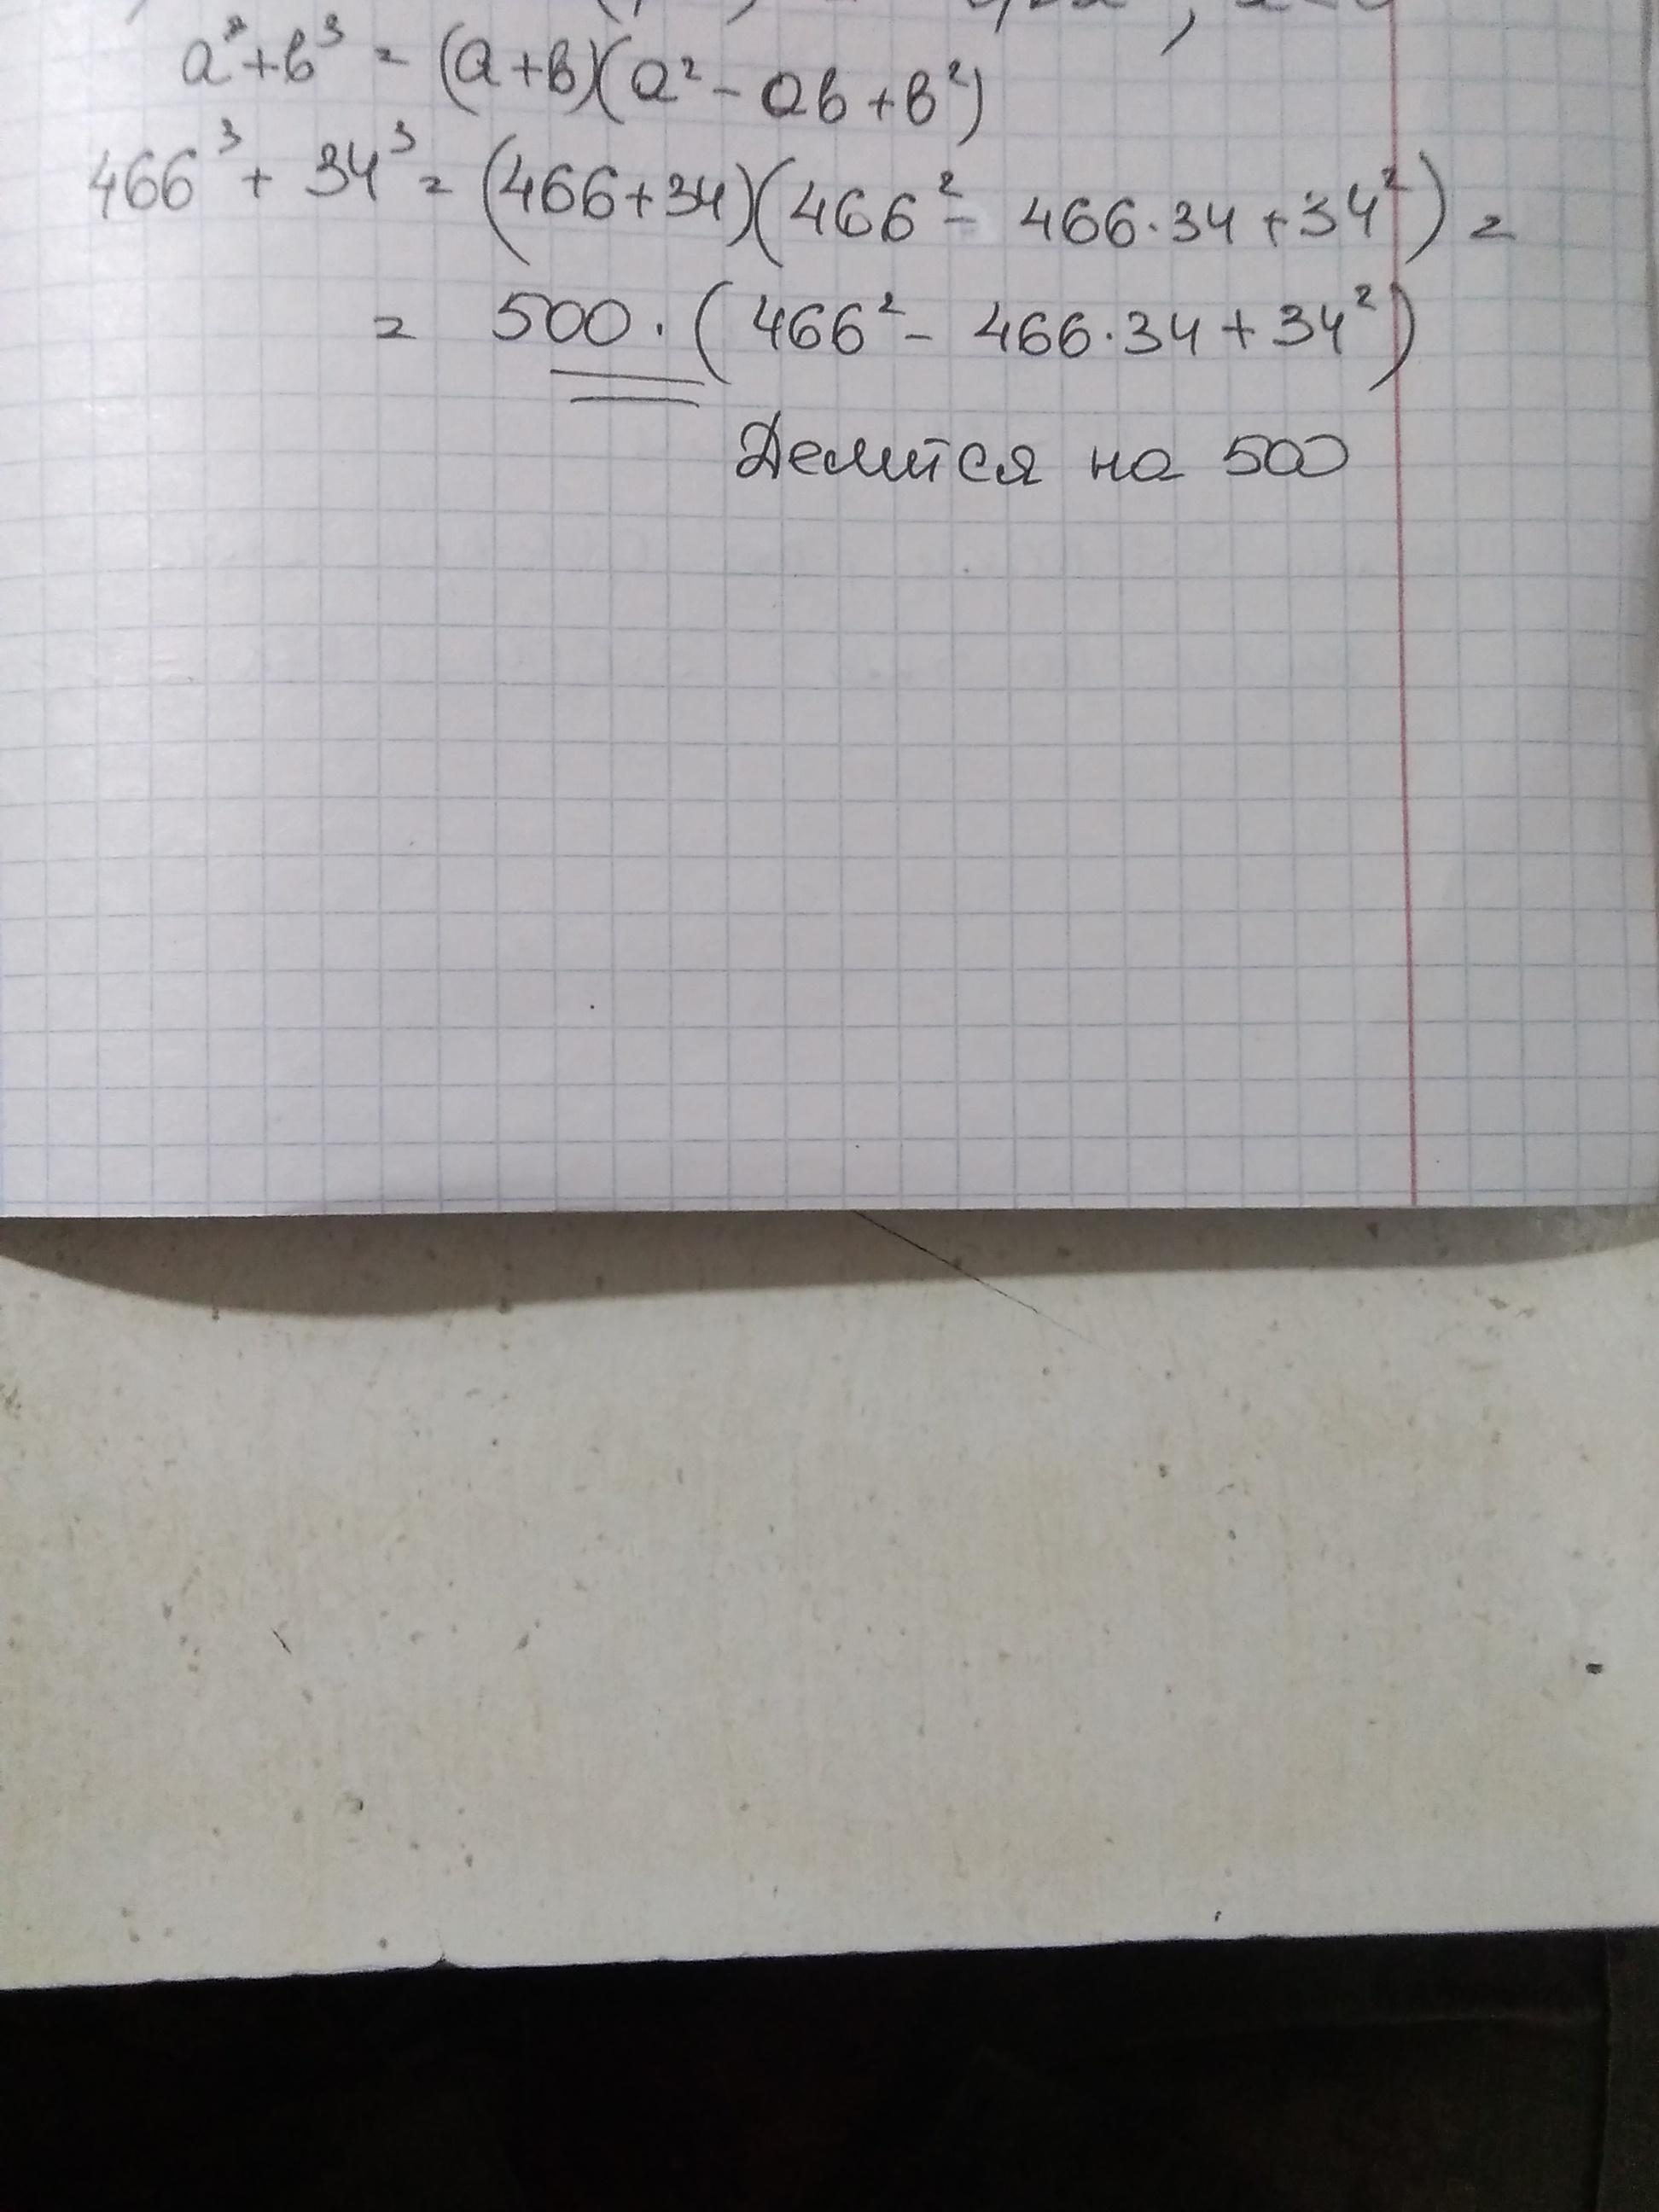 a³+b³ = (a+b)(a² - ab + b²)
466³ + 34³ = (466+34)(466² - 466·34 + 34²) =
= 500·(466² - 466·34 + 34²)
Делится на 500